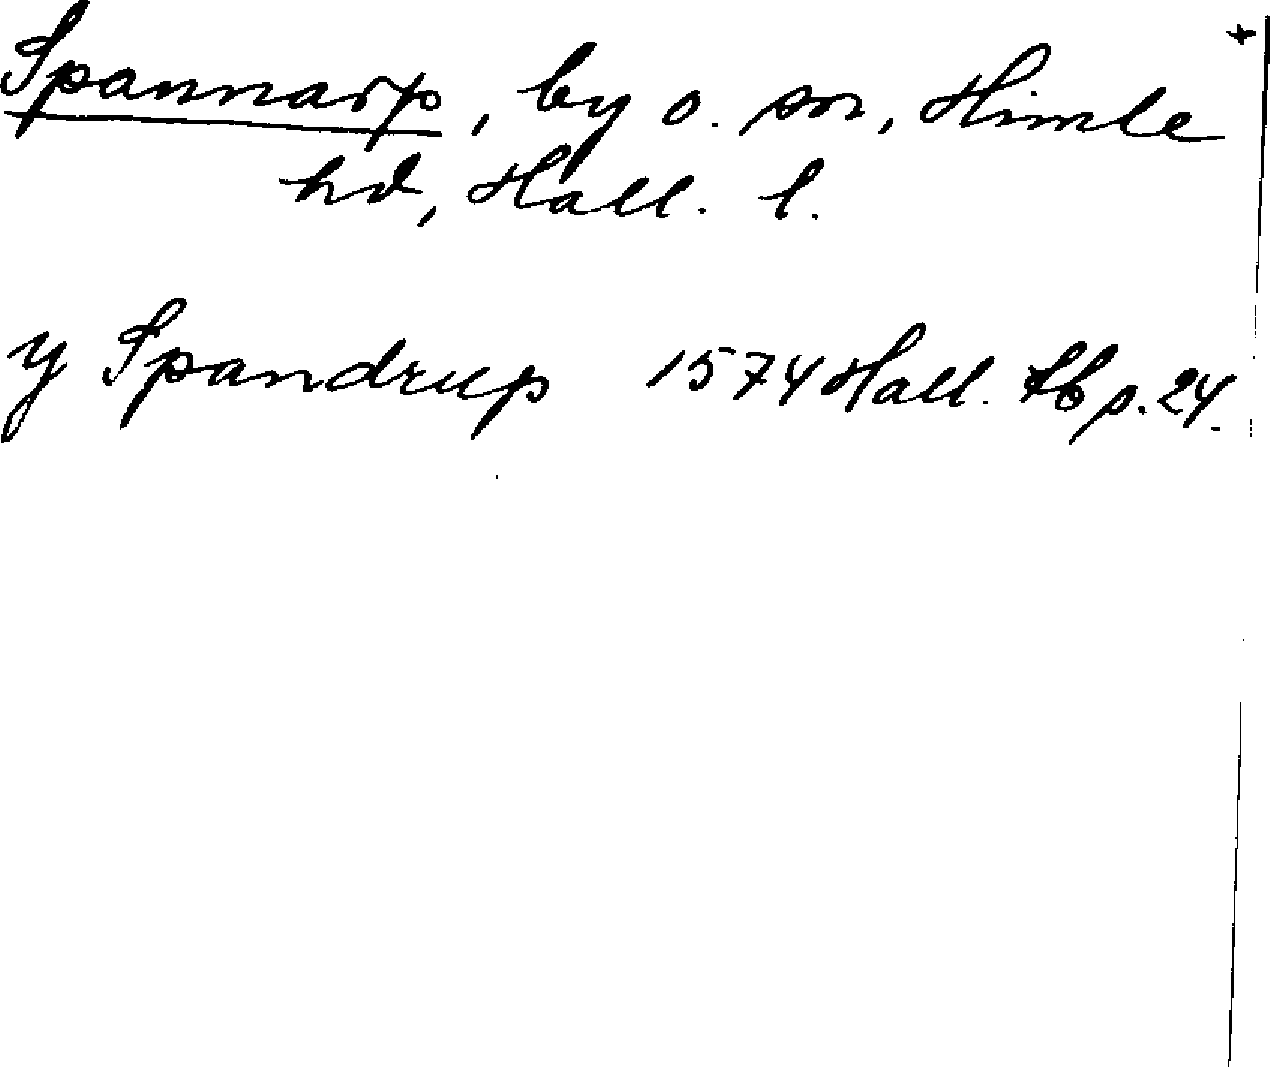 Spannarp, by o. sn, Himle
hd, Hall. l.
y Spandrup 1574 Hall. tb p. 24.